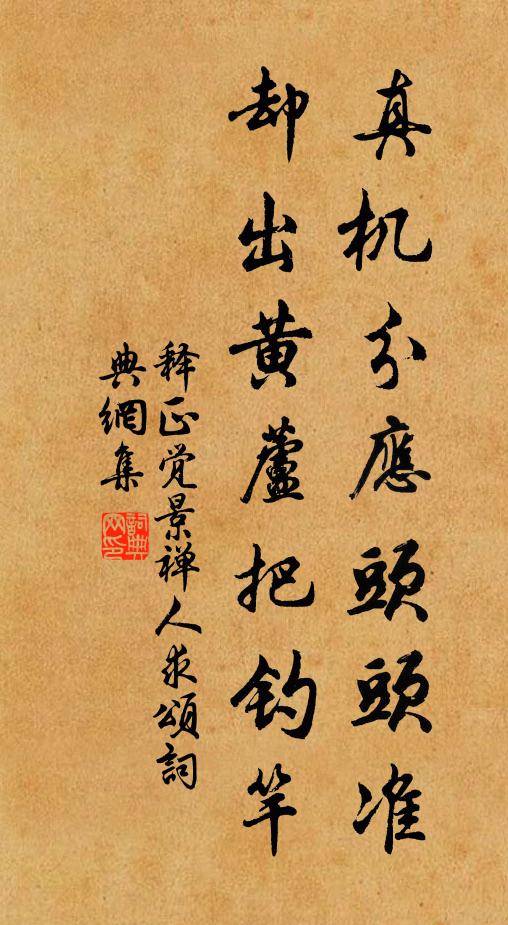 真机分應頭頭准
却出黃蘆把钓竿
释正觉景禅人求頌詞
典網集
詞典
网印